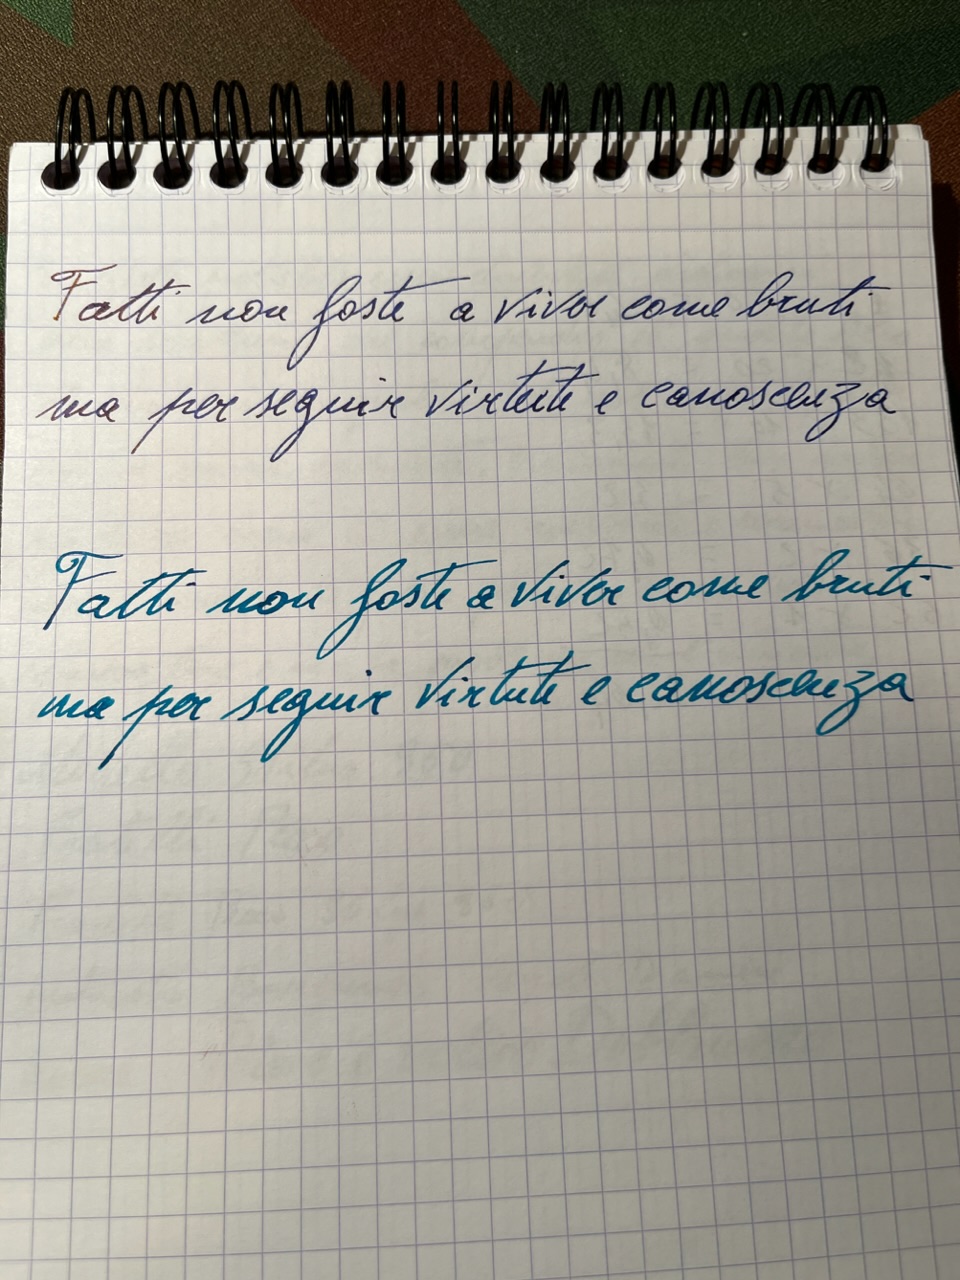 Fatti non foste a viver come bruti
ma per seguir virtute e canoscenza
Fatti non foste a viver come bruti
ma per seguir virtute e canoscenza